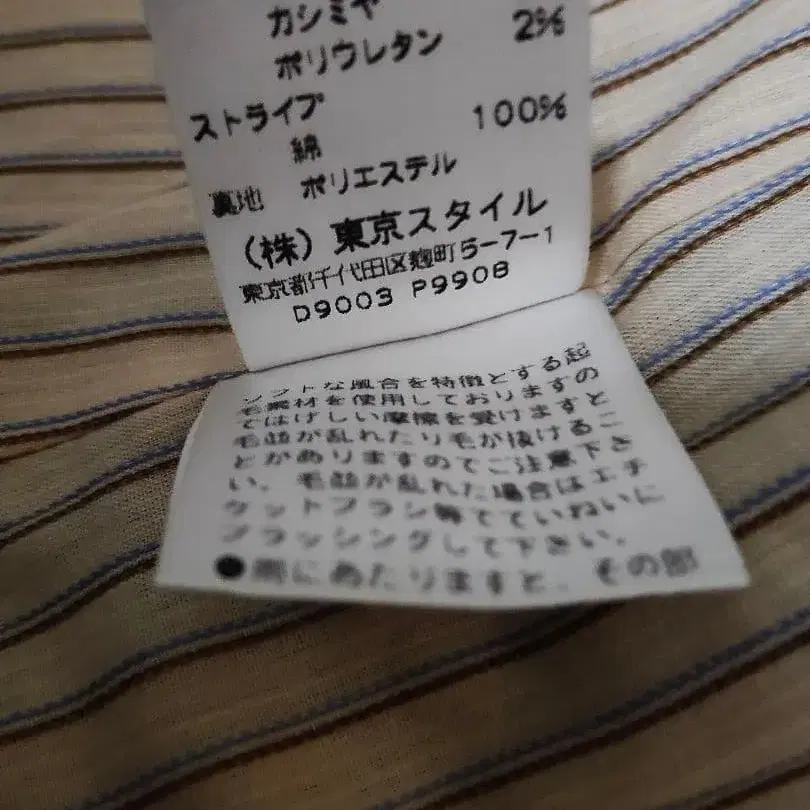 カシミヤ
ポリウレタン 2%
ストライプ
綿 100%
裏地 ポリエステル
(株)東京スタイル
東京都千代田区麹町5-7-1
D9003 P9908
ソフトな風合を特徴とする起
毛素材を使用しておりますの
ではげしい摩擦を受けますと
毛並が乱れたり毛が抜けるこ
とがありますのでご注意下さ
い。毛並が乱れた場合はエチ
ケットブラシ等でていねいに
ブラッシングして下さい。
●雨にあたりますと、その部